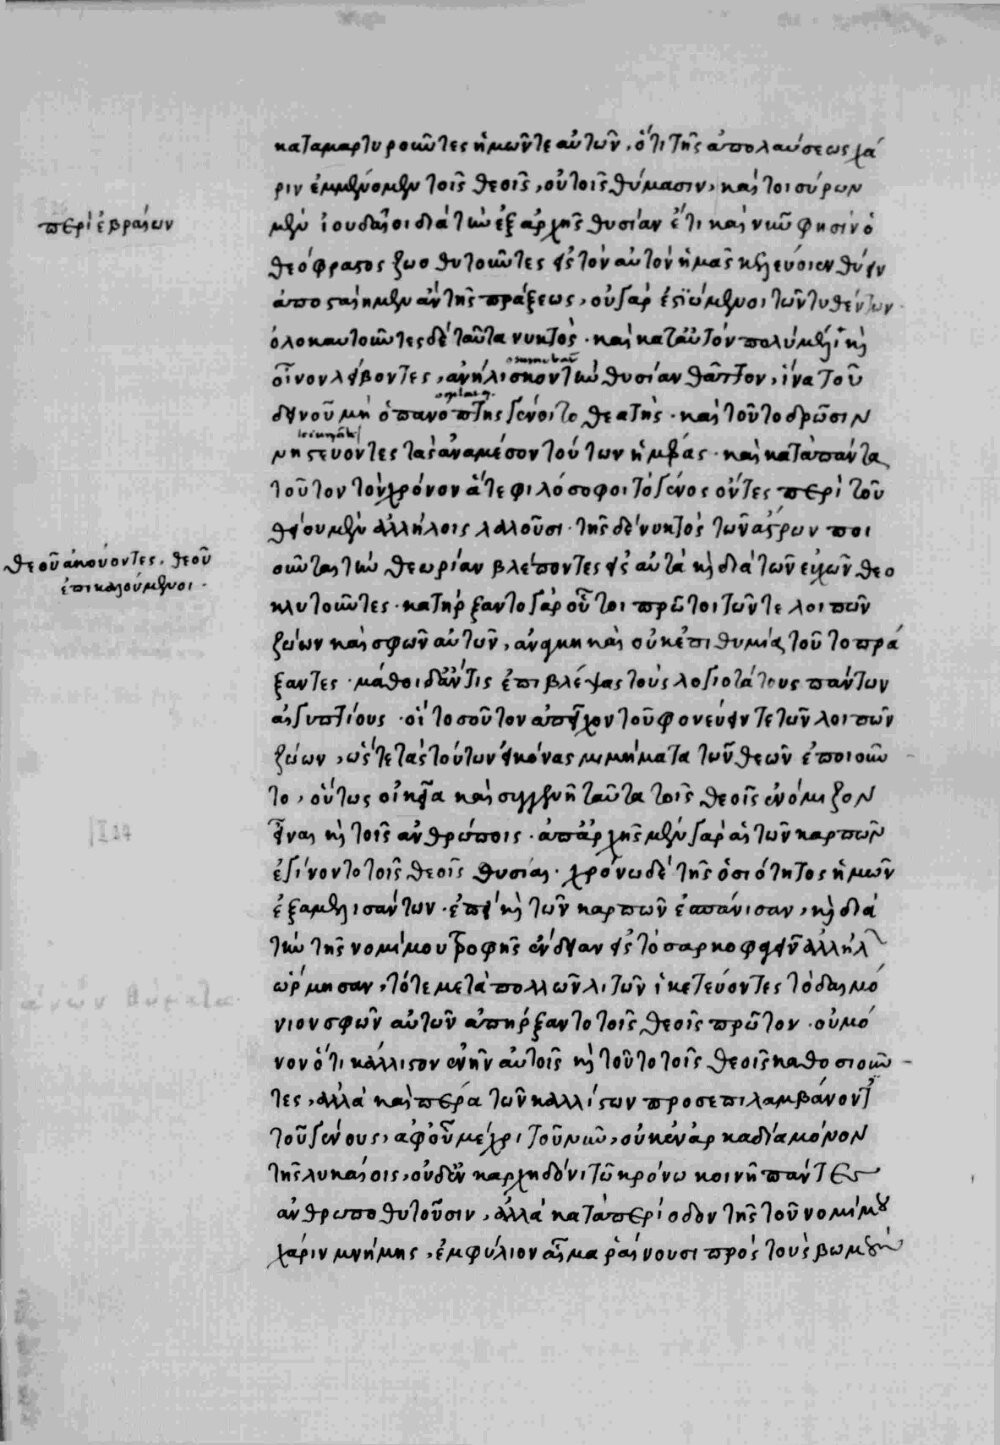 καταμαρτυροῦντες ἡμῶν τε αὐτῶν, ὅτι τῆς ἀπολαύσεως χά
ριν ἐμμένομεν τοῖς θεοῖς, οὐ τοῖς θύμασιν, καίτοι σύρων
περὶ ἑβραίων
μὲν ἰουδαῖοι διὰ τὴν ἐξ ἀρχῆς θυσίαν ἔτι καὶ νῦν φησὶν ὁ
θεόφραστος ζωοθυτοῦντες εἰς τὸν αὐτὸν ἡμᾶς κελεύοιεν θύειν
ἀποσταίημεν ἂν τῆς πράξεως, οὐ γὰρ ἑστιώμενοι τῶν τυθέντων.
ὁλοκαυτοῦντες δὲ ταῦτα νυκτὸς. καὶ κατ' αὐτὸν πολὺ μέλι κὴ
οἶνον λείβοντες, ἀνήλισκον τὴν θυσίαν θᾶττον, ἵνα τοῦ
δεινοῦ μὴ ὁ πανόπτης γένοιτο θεατὴς. καὶ τοῦτο δρῶσιν
νηστεύοντες τὰς ἀναμέσον τούτων ἡμέρας. καὶ κατὰ πάντα
τοῦτον τὸν χρόνον ἅτε φιλόσοφοι τὸ γένος ὄντες περὶ τοῦ
θείου μὲν ἀλλήλοις λαλοῦσι. τῆς δὲ νυκτὸς τῶν ἄστρων ποι
θεοῦ ἀκούοντες. θεοῦ
ἐπικαλούμενοι.
οῦνται τὴν θεωρίαν βλέποντες εἰς αὐτὰ κὴ διὰ τῶν εὐχῶν θεο
κλυτοῦντες. κατήρξαντο γὰρ οὗτοι πρῶτοι τῶν τε λοιπῶν
ζώων καὶ σφῶν αὐτῶν, ἀνάγκη καὶ οὐκ ἐπιθυμίᾳ τοῦτο πρά
ξαντες. μάθοι δ' ἄν τις ἐπιβλέψας τοὺς λογιωτάτους πάντων
αἰγυπτίους. οἳ τοσοῦτον ἀπεῖχον τοῦ φονεύειν τε τῶν λοιπῶν
ζώων, ὥστε τὰς τούτων εἰκόνας μιμήματα τῶν θεῶν ἐποιοῦν
το, οὕτως οἰκεῖα καὶ συγγενῆ ταῦτα τοῖς θεοῖς ἐνόμιζον
εἶναι κὴ τοῖς ἀνθρώποις. ἀπ' ἀρχῆς μὲν γὰρ αἱ τῶν καρπῶν
ἐγίνοντο τοῖς θεοῖς θυσίαι. χρόνω δὲ τῆς ὁσιότητος ἡμῶν
ἐξαμελησάντων. ἐπεὶ κὴ τῶν καρπῶν ἐσπάνισαν, κὴ διὰ
τὴν τῆς νομίμου τροφῆς ἔνδειαν εἰς τὸ σαρκοφαγεῖν ἀλλήλ
ὥρμησαν, τότε μετὰ πολλῶν λιτῶν ἱκετεύοντες τὸ δαιμό
νιον σφῶν αὐτῶν ἀπήρξαντο τοῖς θεοῖς πρῶτον. οὐ μό
νον ὅτι κάλλιστον ἐνῆν αὐτοῖς κὴ τοῦτο τοῖς θεοῖς καθοσιοῦν
τες, ἀλλὰ καὶ πέρα τῶν καλλίστων προσεπιλαμβάνοντ
τοῦ γένους, ἀφ' οὗ μέχρι τοῦ νῦν, οὐκ ἐν ἀρκαδία μόνον
τῆς λυκαίοις, οὐδ' ἐν καρχηδόνι τῶ κρόνω κοινῆ πάντες
ἀνθρωποθυτοῦσιν, ἀλλὰ κατὰ περίοδον τῆς τοῦ νομίμου
χάριν μνήμης, ἐμφύλιον αἷμα ῥαίνουσι πρὸς τοὺς βωμοὺς